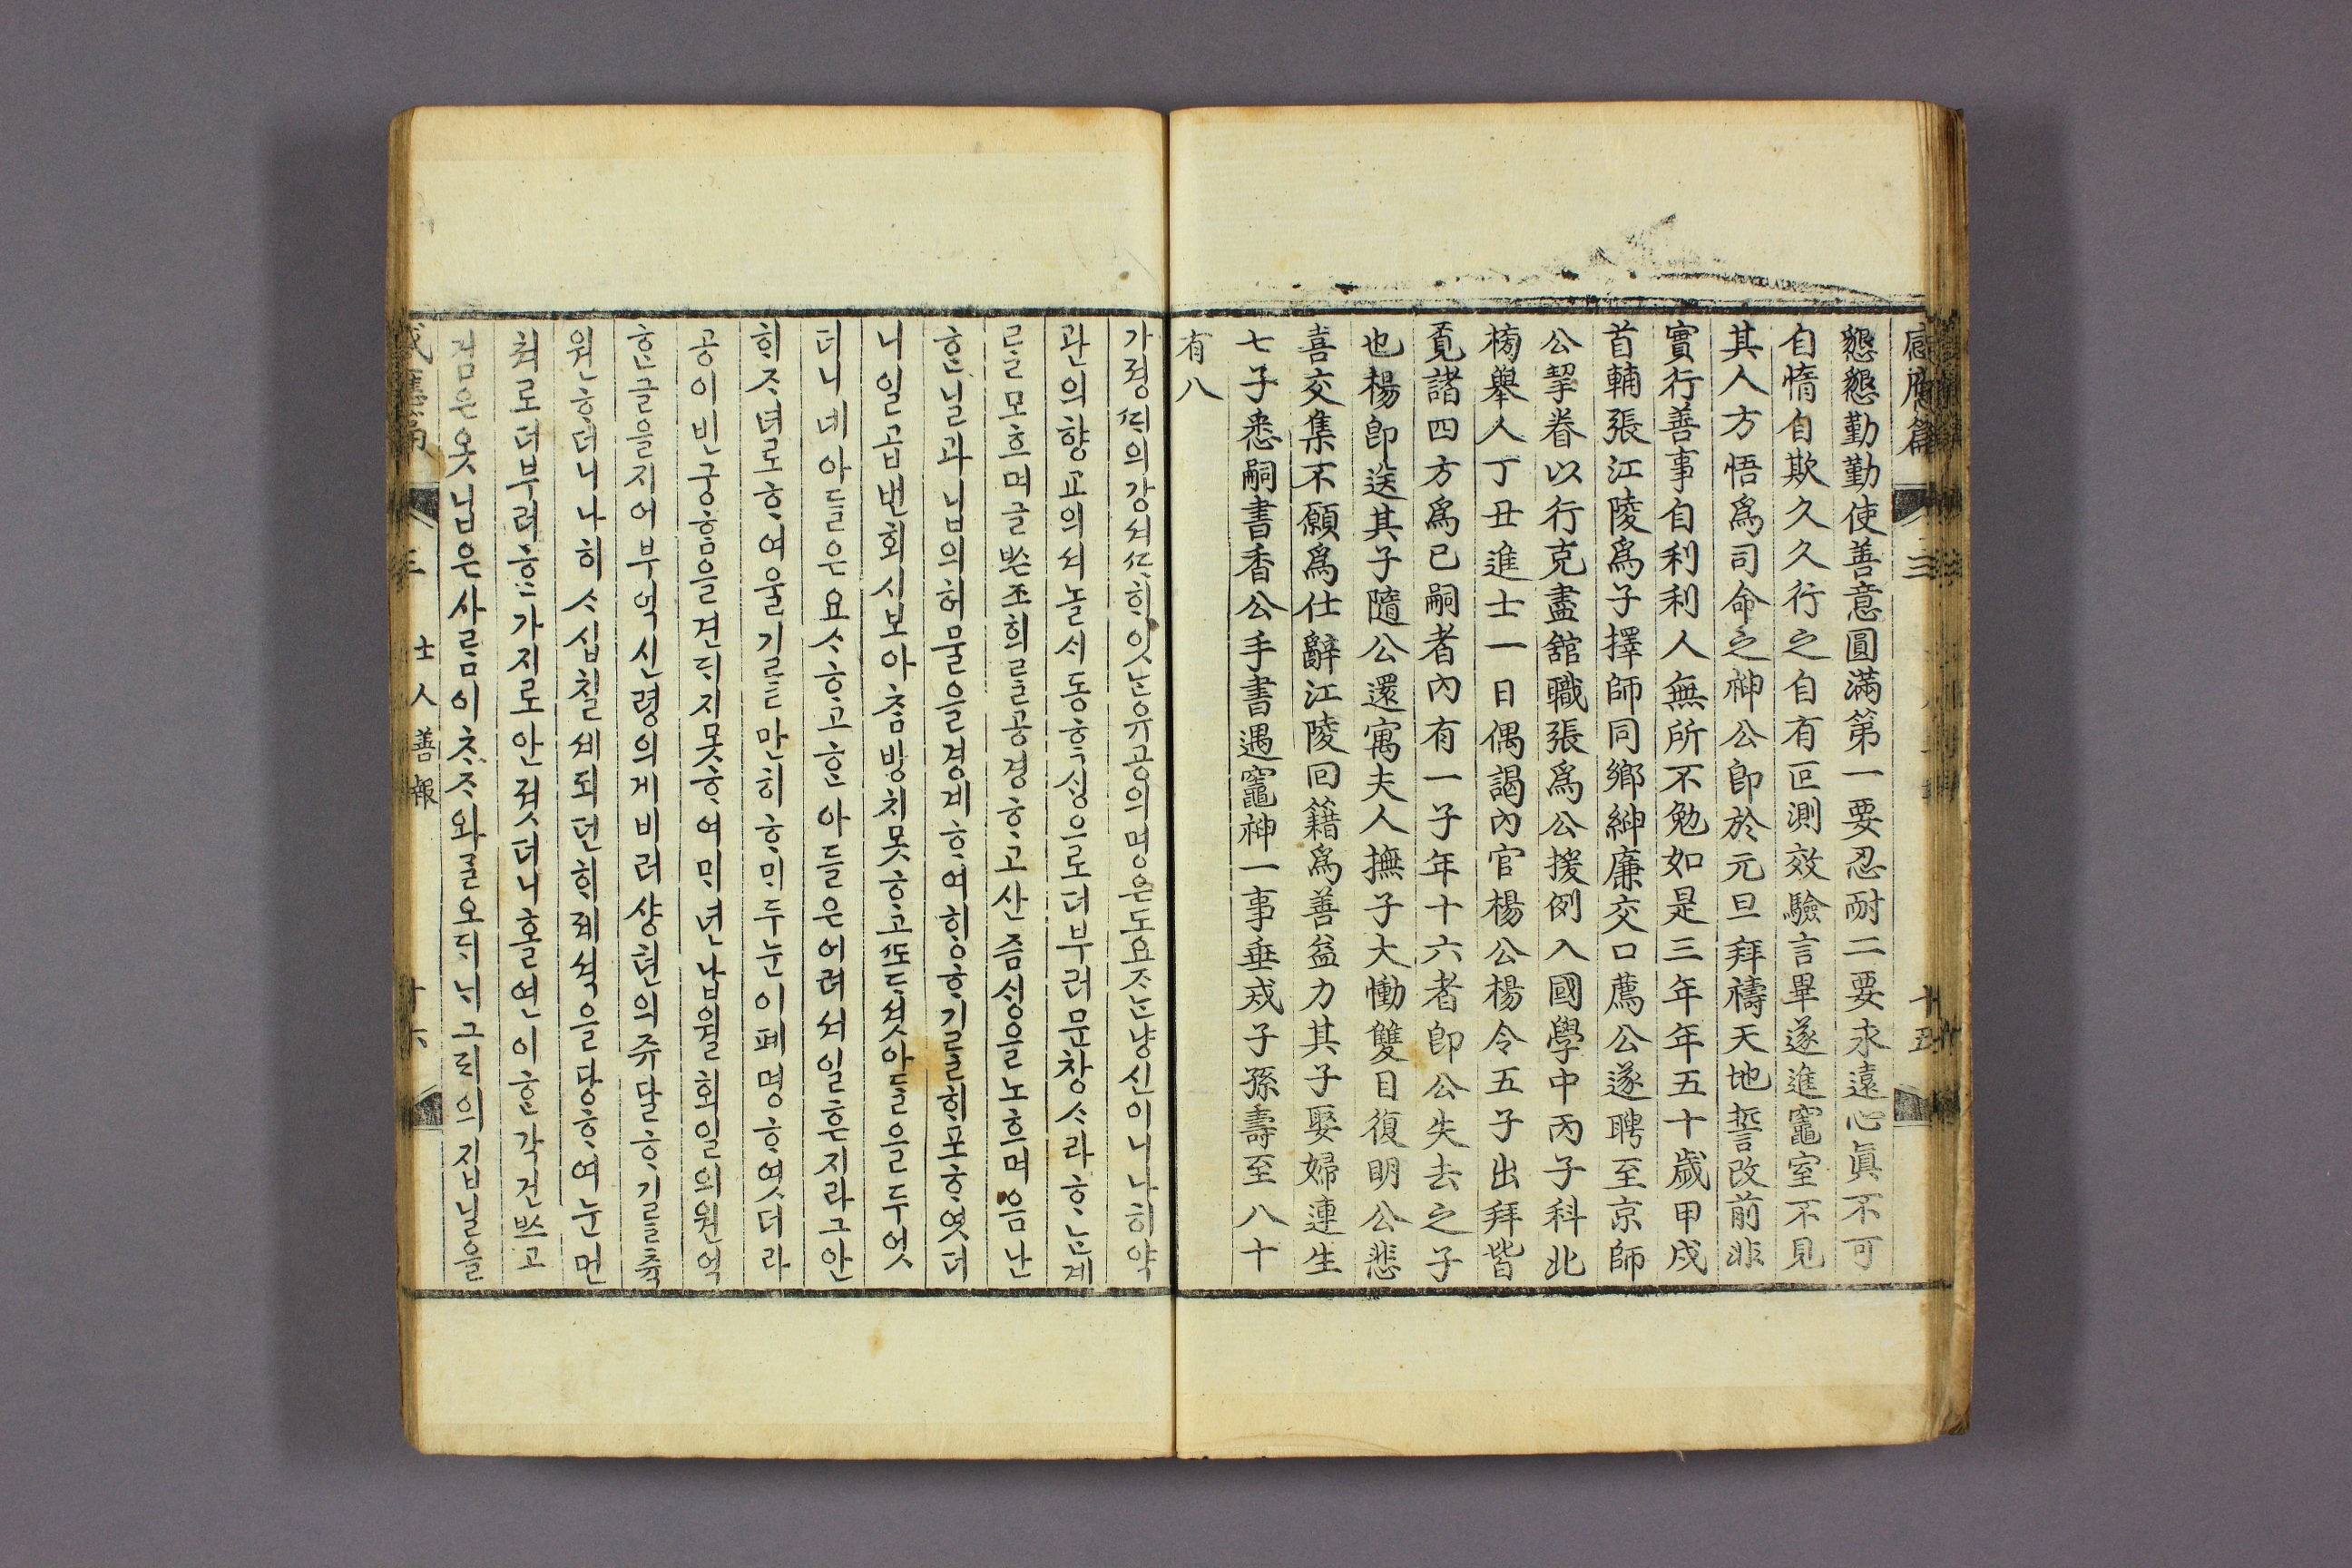 感應篇 三 十五
懇懇勤勤使善意圓滿第一要忍耐二要永遠心眞不可
自惰自欺久久行之自有叵測效驗言畢遂進竈室不見
其人方悟爲司命之神公卽於元旦拜禱天地誓改前非
實行善事自利利人無所不勉如是三年年五十歲甲戌
首輔張江陵爲子擇師同鄕紳廉交口薦公遂聘至京師
公挈眷以行克盡舘職張爲公援例入國學中丙子科北
榜擧人丁丑進士一日偶謁內官楊公楊令五子出拜皆
覓諸四方爲已嗣者內有一子年十六者卽公失去之子
也楊卽送其子隨公還寓夫人撫子大慟雙目復明公悲
喜交集不願爲仕辭江陵回籍爲善益力其子娶婦連生
七子悉嗣書香公手書遇竈神一事垂戒子孫壽至八十
有八
가졍ᄯᅢ의강셔ᄯᅡᄒᆡ잇ᄂᆞᆫ유공의명은도요ᄌᆞᄂᆞᆫ냥신이니나히약
관의향교의셔놀시동ᄒᆞᆨ싱으로더부러문창ᄉᆞ라ᄒᆞᄂᆞᆫ계
ᄅᆞᆯ모흐며글ᄡᅳᆫ죠희ᄅᆞᆯ공경ᄒᆞ고산즘싱을노흐며음난
ᄒᆞᆫ닐과남의허물을경계ᄒᆞ여ᄒᆡᆼᄒᆞ기ᄅᆞᆯᄒᆡ포ᄒᆞ엿더
니일곱번회시모아ᄎᆞᆷ방치못ᄒᆞ고ᄯᅩ다ᄉᆞᆺ아ᄃᆞᆯ을두엇
더니네아ᄃᆞᆯ은요ᄉᆞᄒᆞ고ᄒᆞᆫ아ᄃᆞᆯ은어려셔일흔지라그안
ᄒᆡᄌᆞ뎌로ᄒᆞ여울기ᄅᆞᆯ만히ᄒᆞᄆᆡ두눈이폐명ᄒᆞ엿더라
공이빈궁ᄒᆞᆷ을견ᄃᆡ지못ᄒᆞ여ᄆᆡ년납월회일의원억
ᄒᆞᆫ글을지어부억신령의게비러샹텬의쥬달ᄒᆞ기ᄅᆞᆯ츅
원ᄒᆞ더니나히ᄉᆞ십칠셰되던ᄒᆡ졔셕을당ᄒᆞ여눈먼
쳐로더부러ᄒᆞᆫ가지로안졋더니홀연이ᄒᆞᆫ각건ᄡᅳ고
검은옷닙은사ᄅᆞᆷ이ᄎᆞᄌᆞ와ᄀᆞᆯ오ᄃᆡ내그ᄃᆡ의집닐을
感應篇 三 士人善報 十六